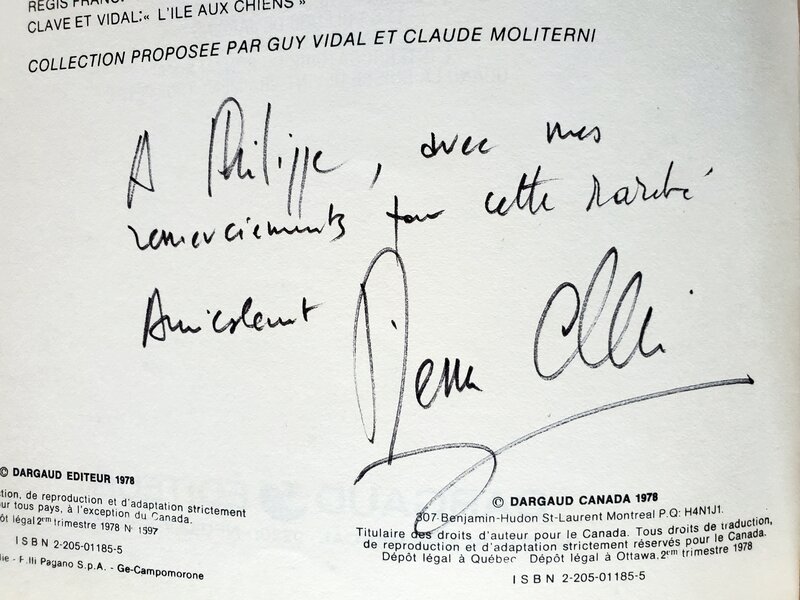 REGIS FRANC
CLAVE ET VIDAL:« L'ILE AUX CHIENS »
COLLECTION PROPOSEE PAR GUY VIDAL ET CLAUDE MOLITERNI
A Philippe, avec mes
remerciements pour cette rareté
Amicalement
© DARGAUD EDITEUR 1978
tion, de reproduction et d'adaptation strictement
ur tous pays, à l'exception du Canada.
ôt légal 2ème trimestre 1978 N° 1597
ISBN 2-205-01185-5
lie - F.lli Pagano S.p.A. - Ge-Campomorone
© DARGAUD CANADA 1978
307 Benjamin-Hudon St-Laurent Montreal P.Q: H4N1J1.
Titulaire des droits d'auteur pour le Canada. Tous droits de traduction,
de reproduction et d'adaptation strictement réservés pour le Canada.
Dépôt légal à Québec Dépôt légal à Ottawa, 2em trimestre 1978
ISBN 2-205-01185-5